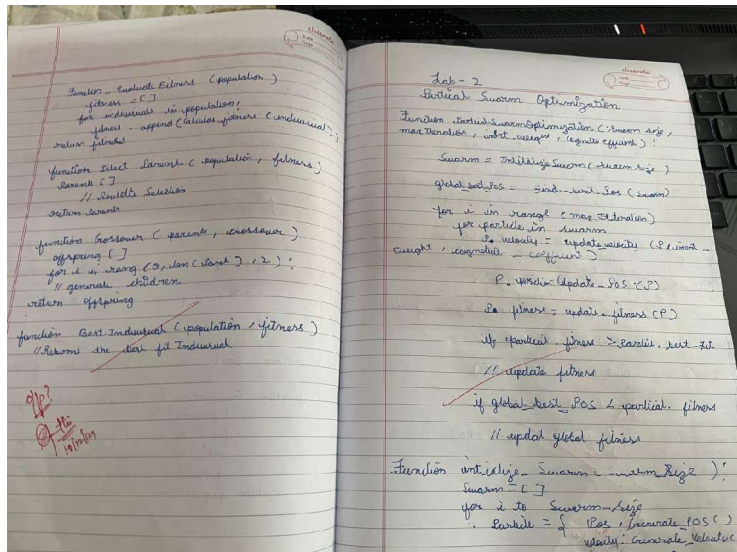 Function_ Evaluate Fitness (population)
fitness = [ ]
for individuals in population:
fitness . append (Calculat_fitness (individual);
return fitness
function select Parent ( population , fitness)
Parent [ ]
// Roulette Selection
return Parents
function Crossover ( parents , crossover )
offspring [ ]
for i in rang (0, len ( ), 2 ) :
// generate children
return Offspring
function Best Individual ( population , fitness )
// Returns the best fit Individual
O/P?
classmate
Date
Page
Lab - 2
Partical Swarm Optimization
Function Partical Swarm Optimization ( Swarm size,
max Iteration , inert_weight , cognitive ) :
Swarm = Initialize Swarm ( swarm size )
global_best_Pos = find_best_Pos ( swarm)
for i in range ( max_Iteration)
for particle in swarm
P. velocity = update_velocity ( P, inert_
weight , cognitive _ coefficient )
P. position = Update _ Pos (P)
P. fitness = update_fitness (P)
if partical . fitness > Partical. best_fit
// update fitness
if global_best_Pos < partical. fitness
// updat global fitness
Function _ Swarm size ) :
Swarm = [ ]
for i to Swarm_size
Particle = { Pos , Generate_POS( )
velocity: Generate_